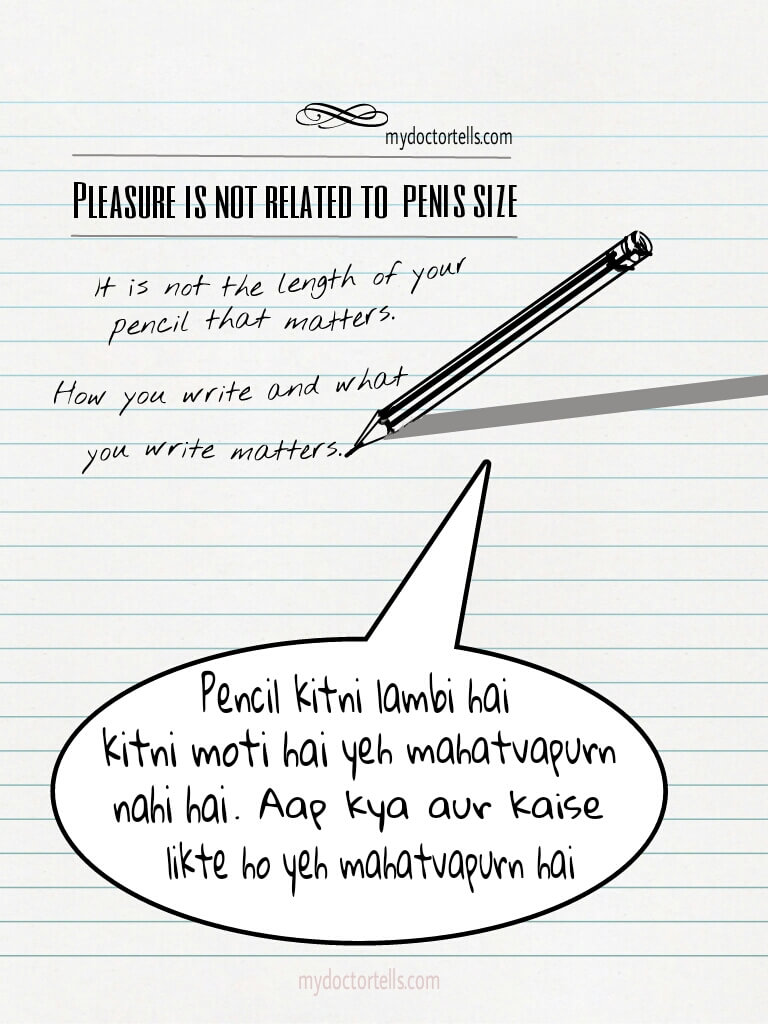 mydoctortells.com
PLEASURE IS NOT RELATED TO PENIS SIZE
It is not the length of your
pencil that matters.
How you write and what
you write matters.
Pencil kitni lambi hai
kitni moti hai yeh mahatvapurn
nahi hai. Aap kya aur kaise
likte ho yeh mahatvapurn hai
mydoctortells.com